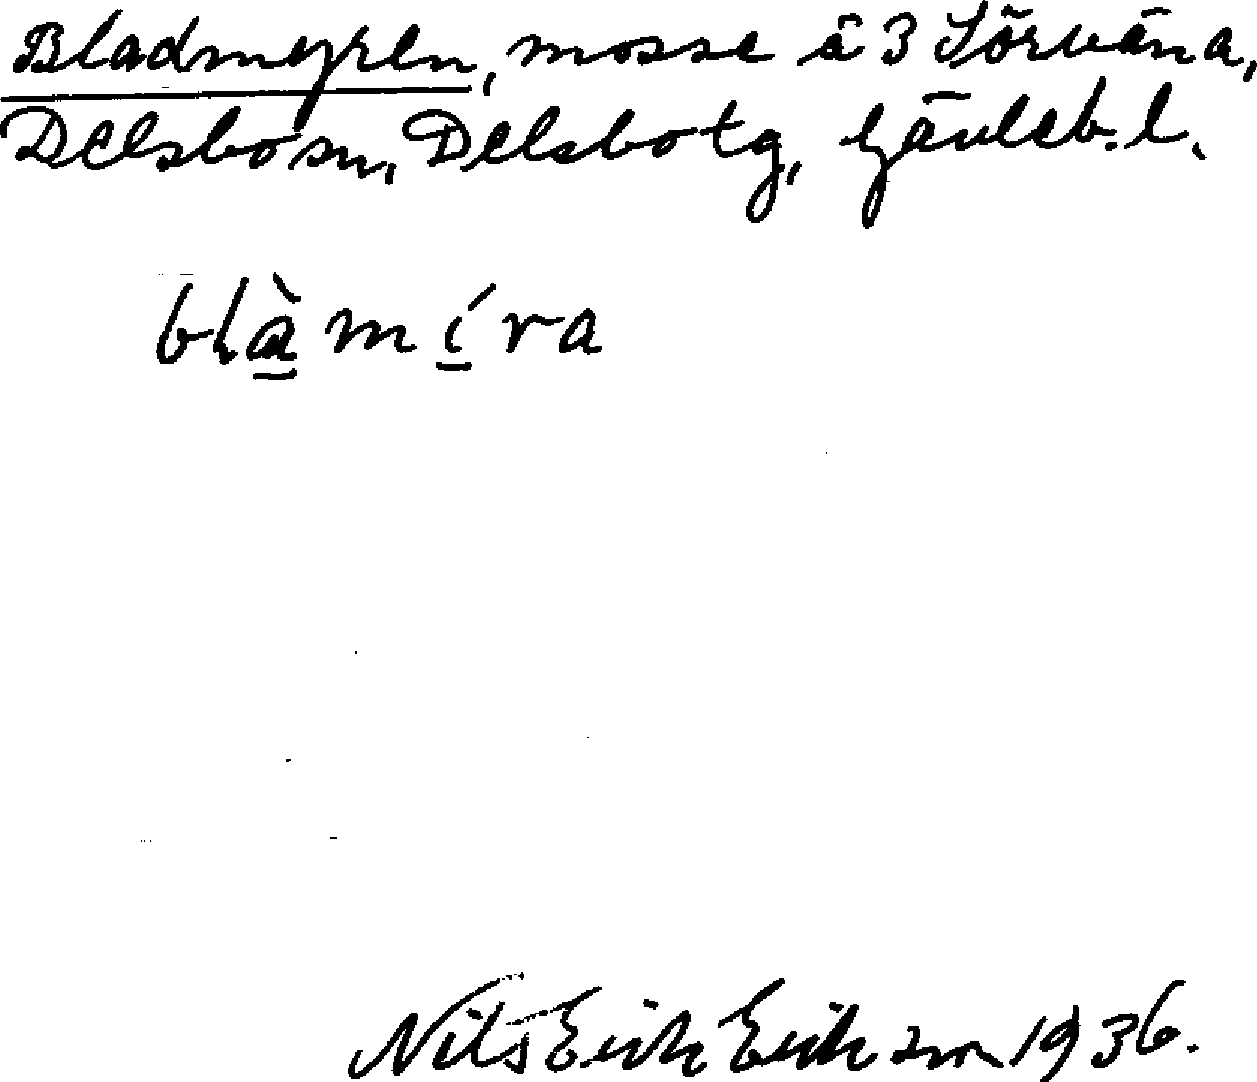 Bladmyren, mosse å 3 Sörväna,
Delsbo sn, Delsbo tg, Gävleb. l.
blàmíra
Nils Erik Eriksson 1936.